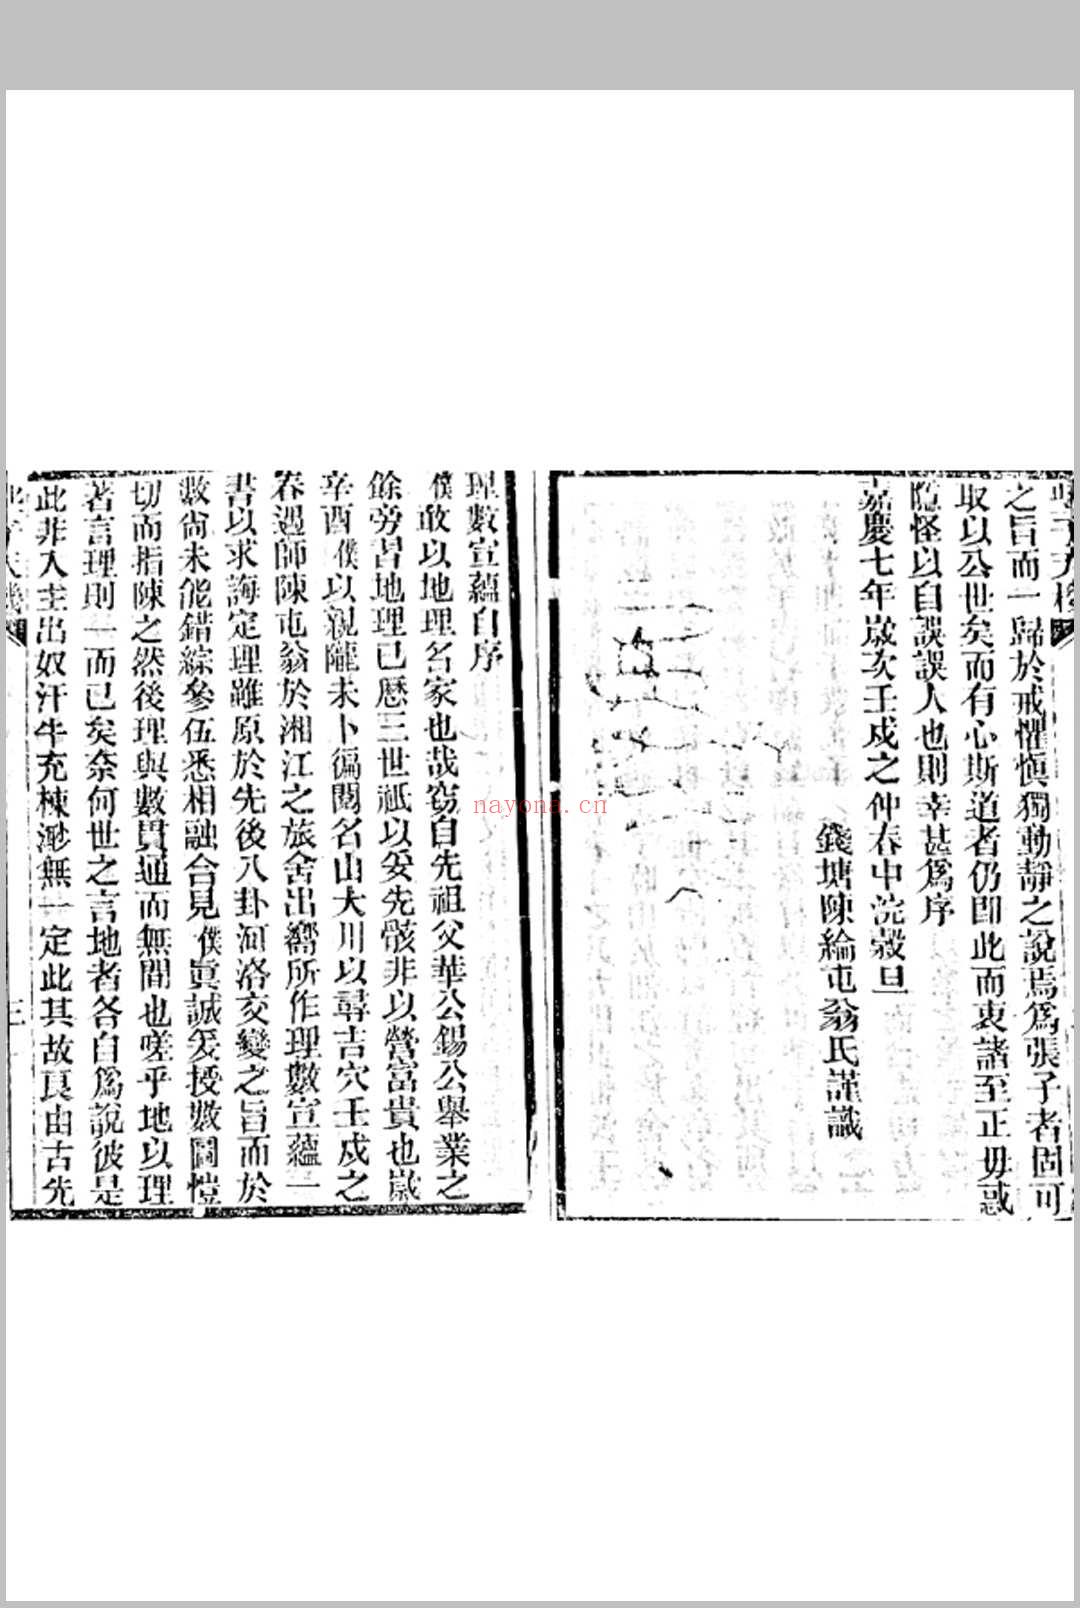 之旨而一歸於戒懼慎獨動靜之說焉爲張子者固可
取以公世矣而有心斯道者仍卽此而衷諸至正毋惑
隱怪以自誤誤人也則幸甚爲序
嘉慶七年歲次壬戌之仲春中浣穀旦
錢塘陳綸屯翁氏謹識
理數宣蘊自序
僕敢以地理名家也哉窃自先祖父華公錫公舉業之
餘旁習地理已歷三世祇以妥先骸非以營富貴也嵗
辛酉僕以親隴未卜徧閱名山大川以尋吉穴壬戌之
春遇師陳屯翁於湘江之旅舍出嚮所作理數宣蘊一
書以求誨定理雖原於先後八卦河洛交變之旨而於
數尚未能錯綜參伍悉相融合見僕眞誠爰授數圖愷
切而指陳之然後理與數貫通而無間也嗟乎地以理
著言理則一而已矣奈何世之言地者各自爲說彼是
此非入主出奴汗牛充棟渺無一定此其故良由古先
三
nayona.cn